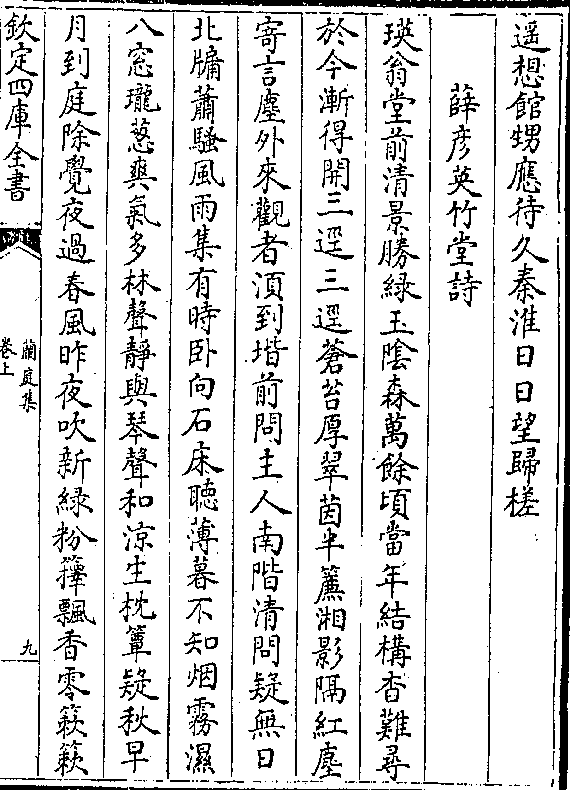 遥想館甥應待久秦淮日日望歸槎
薛彦英竹堂詩
瑛翁堂前清景勝緑玉陰森萬餘頃當年結構杳難尋
於今漸得開三逕三逕蒼苔厚翠茵半簾湘影隔紅塵
寄言塵外來觀者湏到堦前問主人南階清閟疑無日
北牖蕭騷風雨集有時卧向石床聽薄暮不知烟霧濕
八窓瓏蔥爽氣多林聲靜與琴聲和凉生枕簟疑秋早
月到庭除覺夜過春風昨夜吹新緑粉籜飄香零簌簌
欽定四庫全書
蘭庭集
卷上
九